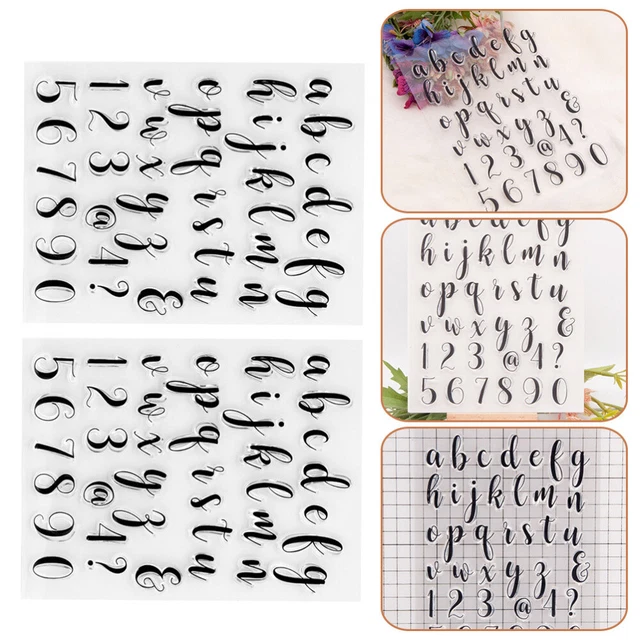 a b c d e f g
h i j k l m n
o p q r s t u
v w x y z &
1 2 3 @ 4 ?
5 6 7 8 9 0
a b c d e f g
h i j k l m n
o p q r s t u
v w x y z &
1 2 3 @ 4 ?
5 6 7 8 9 0
a b c d e f g
h i j k l m n
o p q r s t u
v w x y z &
1 2 3 @ 4 ?
5 6 7 8 9 0
a b c d e f g
h i j k l m n
o p q r s t u
v w x y z &
1 2 3 @ 4 ?
5 6 7 8 9 0
a b c d e f g
h i j k l m n
o p q r s t u
v w x y z &
1 2 3 @ 4 ?